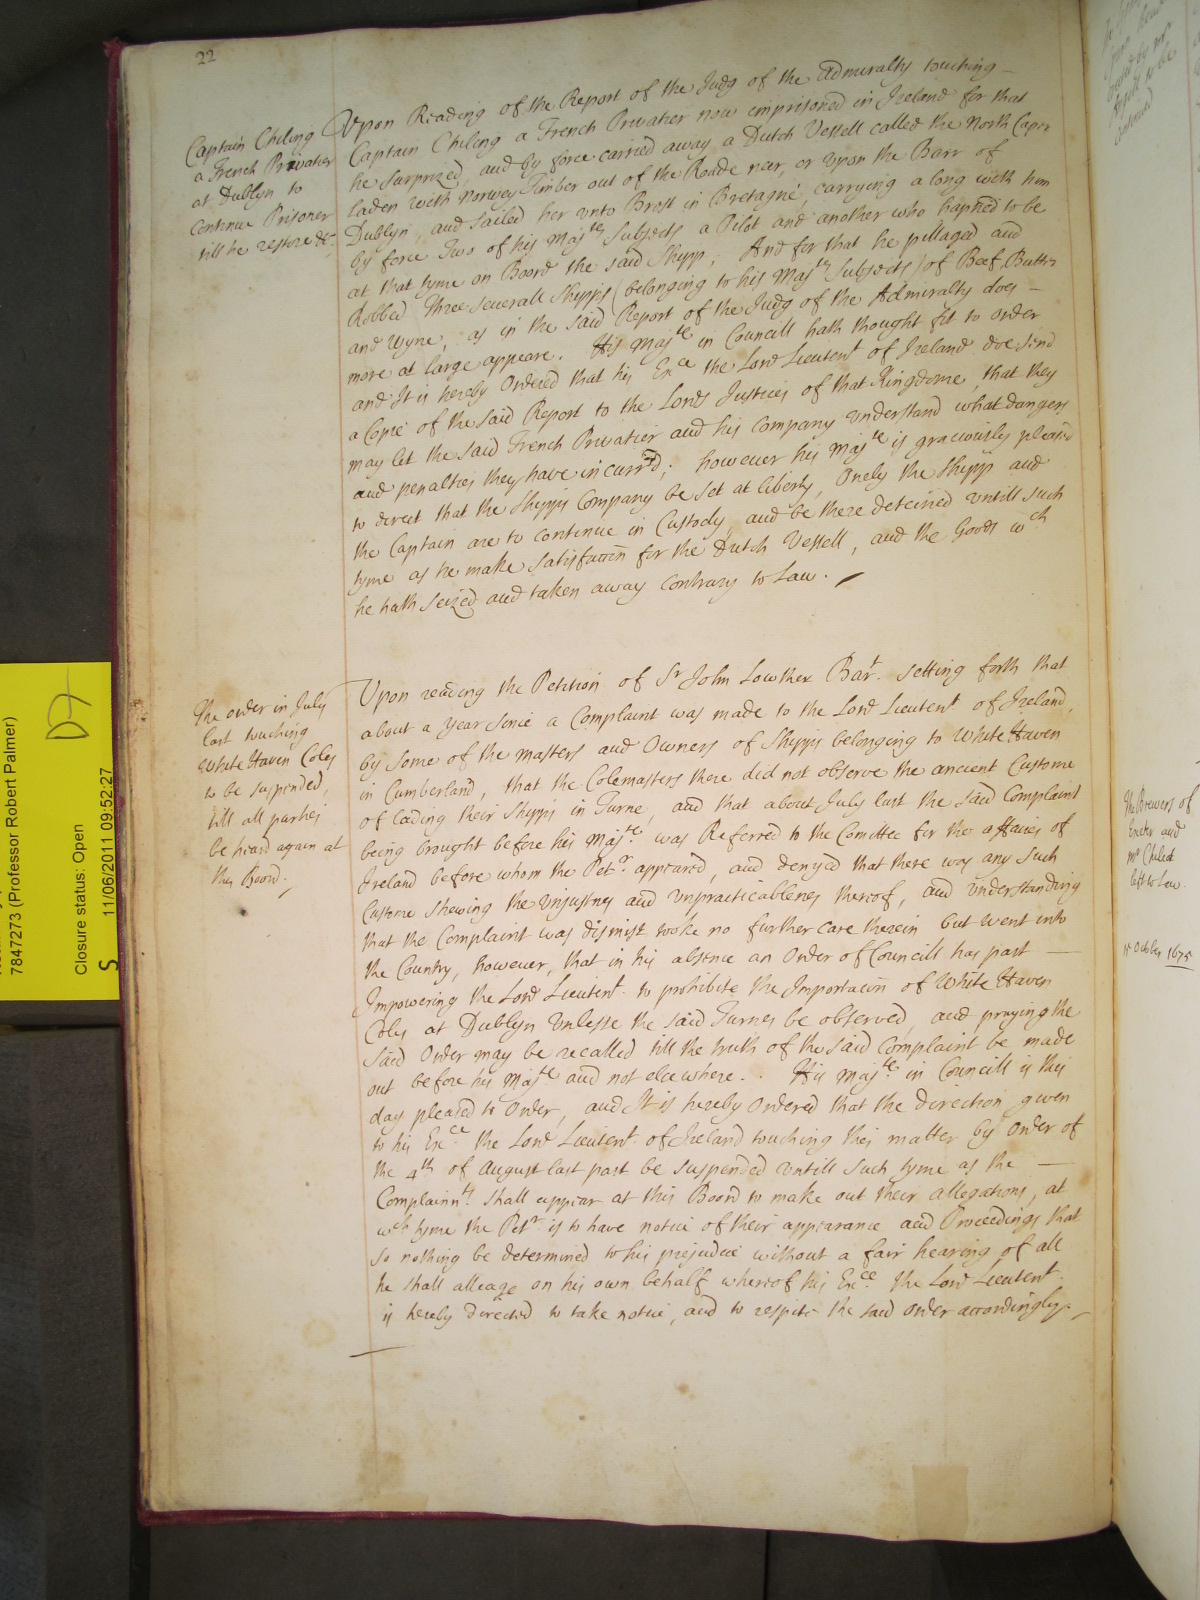 22
Captain Chiling
a French Privatier
at Dublyn to
Continue Prisoner
till he restore &c.
Upon Reading of the Report of the Judg of the Admiralty touching
Captain Chiling a French Privatier now imprisoned in Ireland for that
he surprized, and by force carried away a Dutch Vessell called the North Caper
laden with Norwey Timber out of the Roade near, or upon the Barr of
Dublyn, and sailed her unto Brest in Bretagne, carrying along with him
by force Two of his Majtes Subjects a Pilot and another who hapned to be
at that tyme on Board the said Shipp; And for that he pillaged and
Robbed Three severall Shipps (belonging to his Majtes Subjects) of Beef, Butter
and Wyne, as in the said Report of the Judg of the Admiralty does
more at large appeare. His Majtie in Councill hath thought fit to order
and It is hereby Ordered that his Exce the Lord Lieutent of Ireland doe send
a Copie of the said Report to the Lords Justices of that Kingdome, that they
may let the said French Privatier and his Company understand what dangers
and penalties they have incurr'd; however his Majtie is graciously pleased
to direct that the Shipps Company be set at liberty, Onely the Shipp and
the Captain are to continue in Custody, and be there deteined untill such
tyme as he make satisfaccon for the Dutch Vessell, and the Goods wch
he hath seized and taken away Contrary to Law.
The order in July
last touching
White Haven Coles
to be suspended,
till all parties
be heard again at
this Board.
Upon reading the Petition of Sr John Lowther Bart. setting forth that
about a year since a Complaint was made to the Lord Lieutent of Ireland,
by some of the Masters and Owners of Shipps belonging to White Haven
in Cumberland, that the Colemasters there did not observe the ancient Custome
of lading their Shipps in Turne, and that about July last the said Complaint
being brought before his Majtie was Referred to the Comittee for the affaires of
Ireland before whom the Petr. appeared, and denyed that there was any such
Custome shewing the unjustnes and unpracticablenes thereof, and understanding
that the Complaint was dismist tooke no further care therein but went into
the Country, however, that in his absence an Order of Councill has past
Impowering the Lord Lieutent. to prohibite the Importacon of White Haven
Coles at Dublyn unlesse the said Turnes be observed, and praying the
said Order may be recalled till the truth of the said Complaint be made
out before his Majtie and not elsewhere. His Majtie in Councill is this
day pleased to Order, and It is hereby Ordered that the direction given
to his Exce. the Lord Lieutent. of Ireland touching this matter by Order of
the 4th of August last past be suspended untill such tyme as the
Complainnts. shall appear at this Board to make out their allegations, at
wch tyme the Petr. is to have notice of their appearance and Proceedings that
so nothing be determined to his prejudice without a fair hearing of all
he shall alleage on his own behalf whereof his Exce. the Lord Lieutent.
is hereby directed to take notice, and to respite the said Order accordingly.
The Brewers of
Exeter and
left to Law.
15 October 1675
7847273 (Professor Robert Palmer)
D7
Closure status: Open
S 11/06/2011 09:52:27